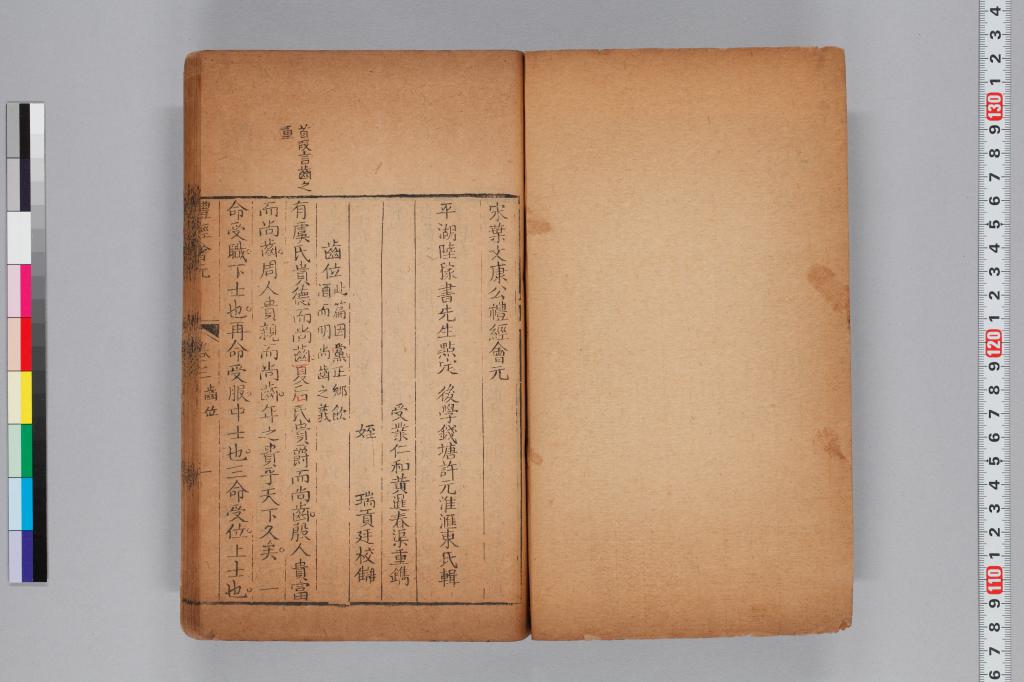 宋葉文康公禮經會元
平湖陸稼書先生點定　後學錢塘許元淮滙東氏輯
受業仁和黃暹春渠重鐫
姪　瑞貢廷校讎
齒位　此篇因黨正鄉飲
酒而明尚齒之義
首段言齒之
重
有虞氏貴德而尚齒夏后氏貴爵而尚齒殷人貴富
而尚齒周人貴親而尚齒年之貴乎天下久矣　一
命受職下士也再命受服中士也三命受位上士也
禮經會元　卷三　齒位　一
130
120
110